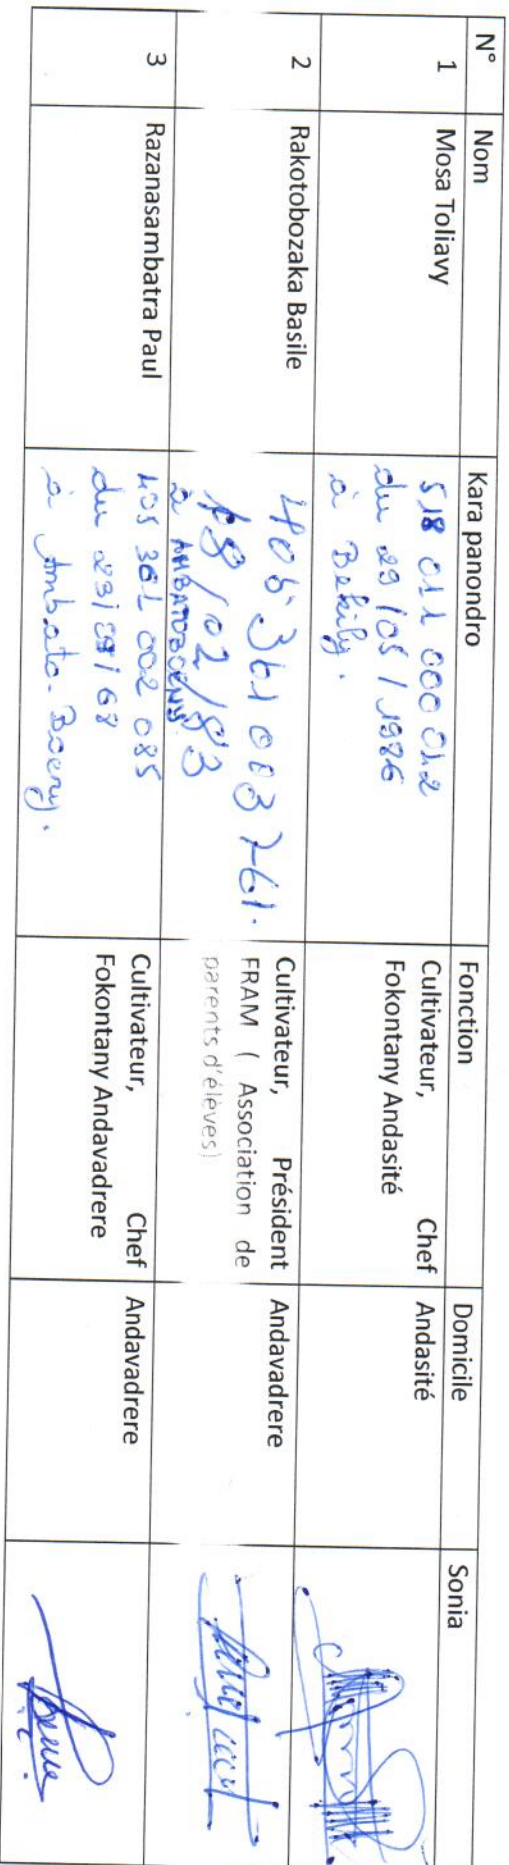 N° Nom Kara panondro Fonction Domicile Sonia
1 Mosa Toliavy
518 011 000 012
du 29/05/1986
à Bekily.
Cultivateur, Chef
Fokontany Andasité
Andasité
2 Rakotobozaka Basile
405 361 003 761.
18/02/83
à AMBATOBOENY
Cultivateur, Président
FRAM ( Association de
parents d'élèves)
Andavadrere
3 Razanasambatra Paul
405 361 002 085
du 23/09/68
à Ambato-Boeny.
Cultivateur, Chef
Fokontany Andavadrere
Andavadrere